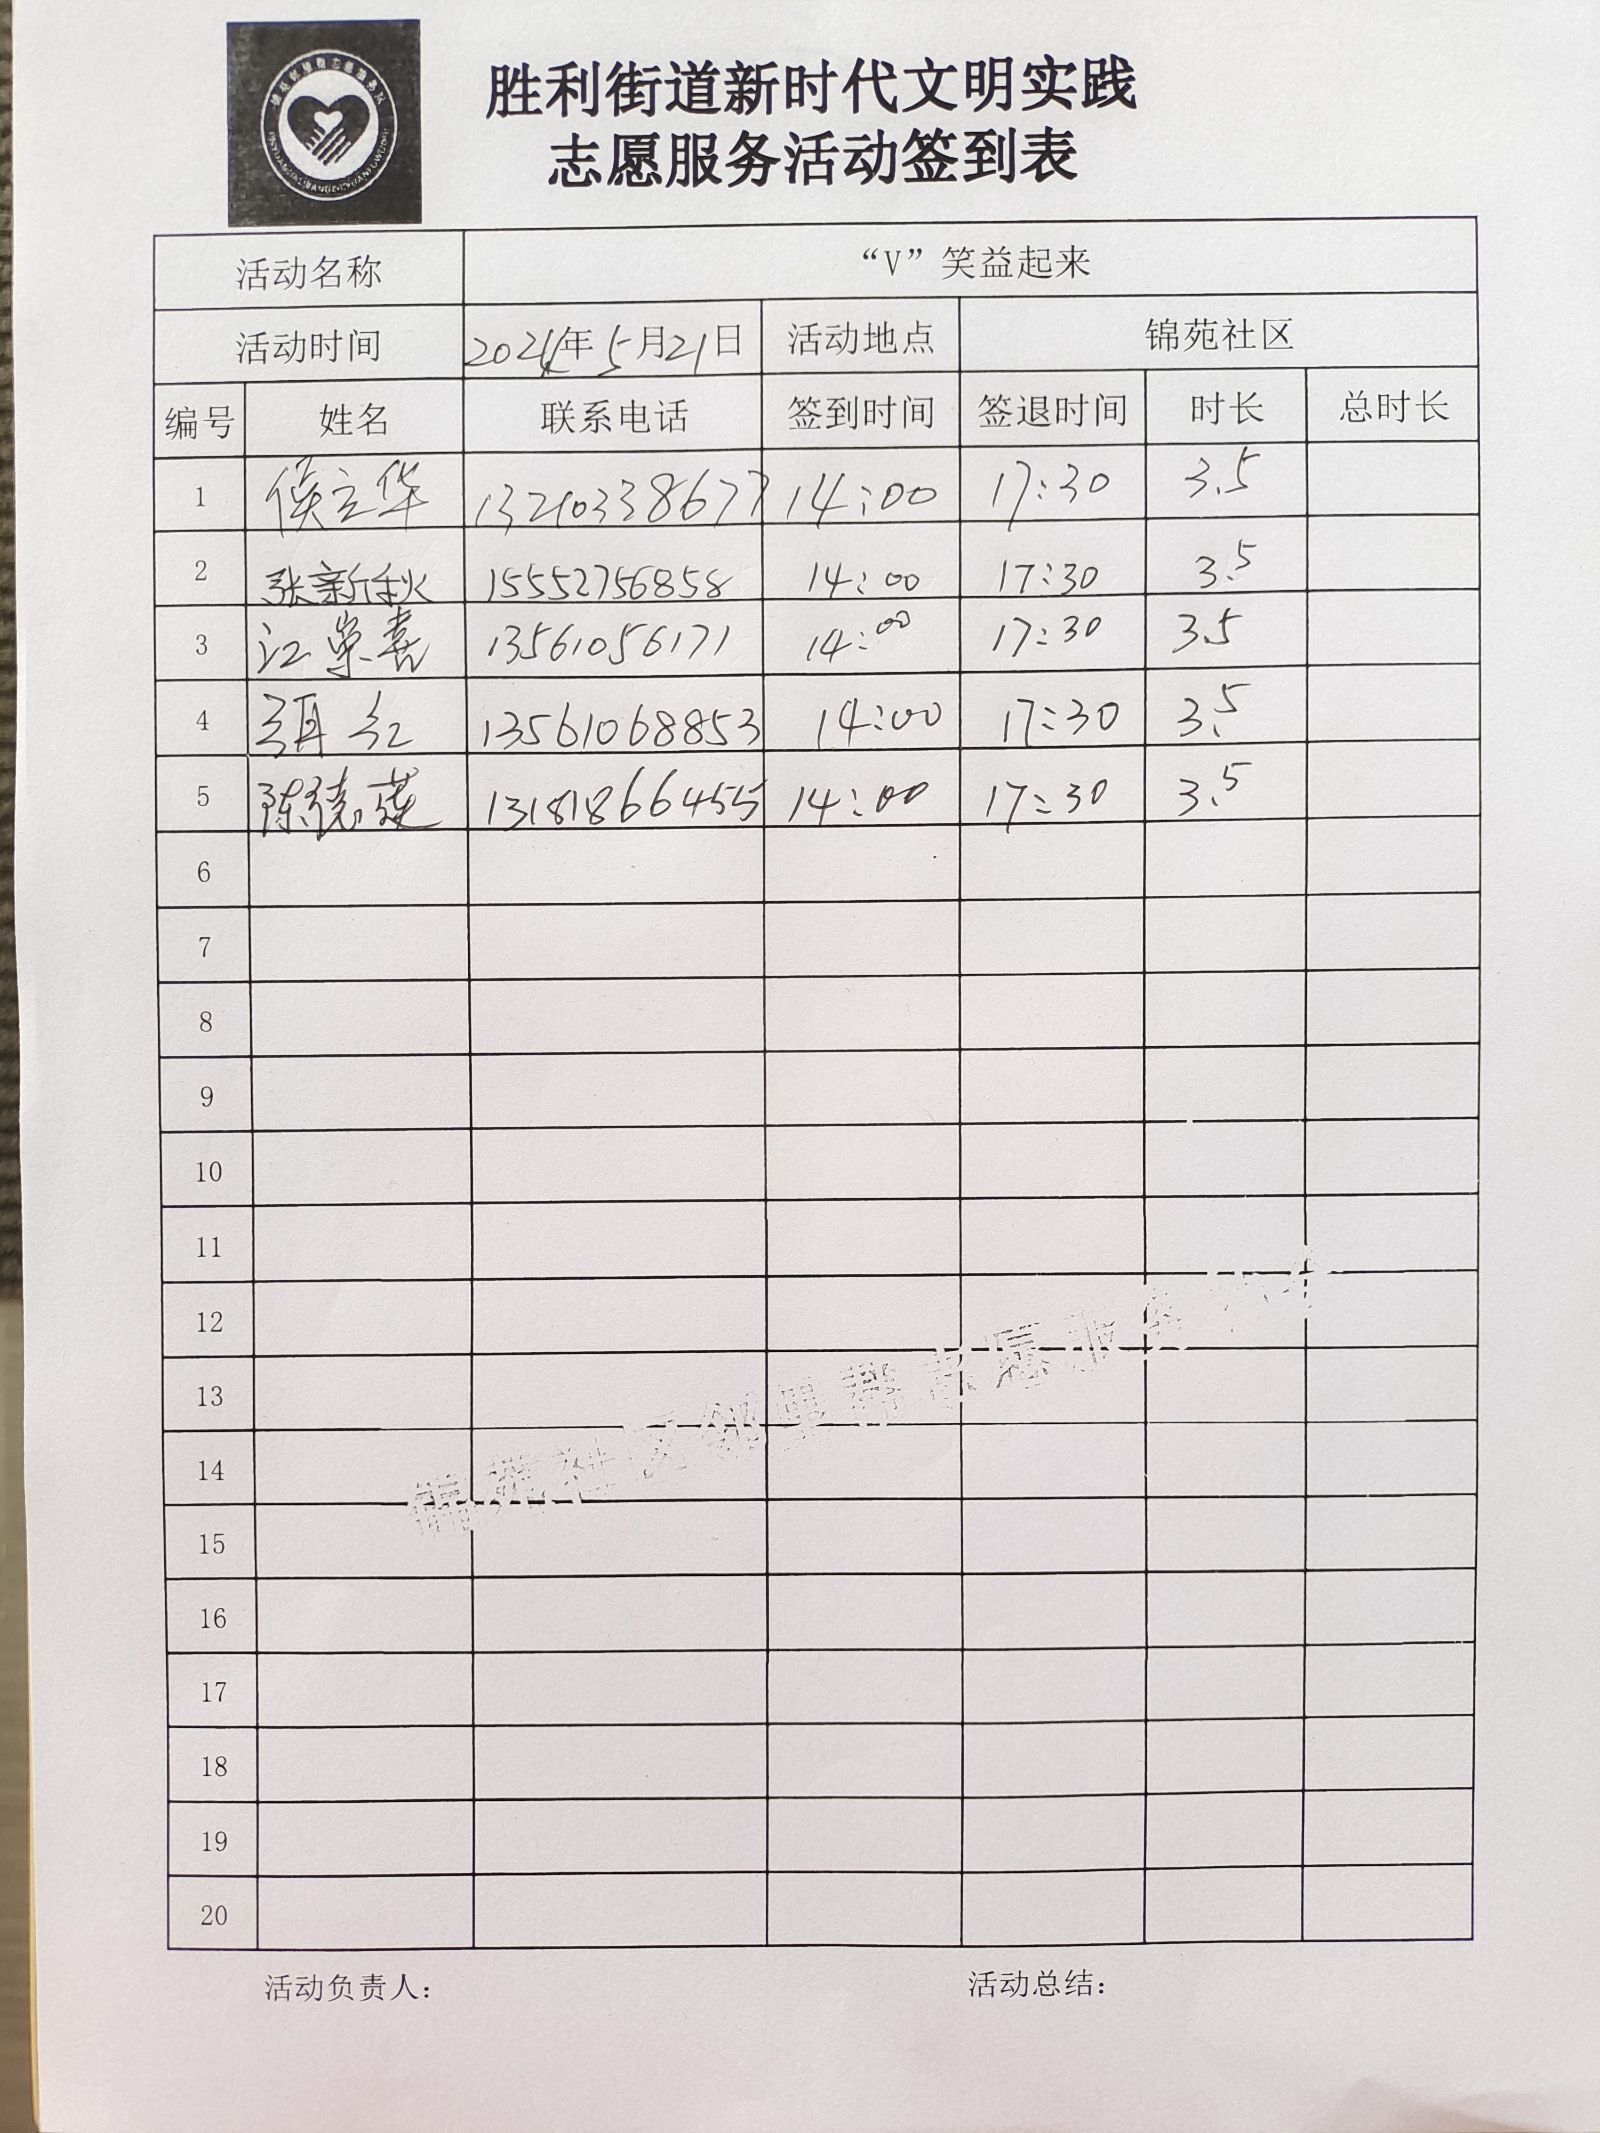 胜利街道新时代文明实践
志愿服务活动签到表
活动名称 “V”笑益起来
活动时间 2024年5月21日 活动地点 锦苑社区
编号 姓名 联系电话 签到时间 签退时间 时长 总时长
1 侯立华 13210338677 14:00 17:30 3.5
2 张新秋 15552756858 14:00 17:30 3.5
3 江荣喜 13561056171 14:00 17:30 3.5
4 红 13561068853 14:00 17:30 3.5
5 陈德英 13181866455 14:00 17:30 3.5
6
7
8
9
10
11
12
13
锦苑社区邻里帮志愿服务
14
15
16
17
18
19
20
活动负责人： 活动总结：